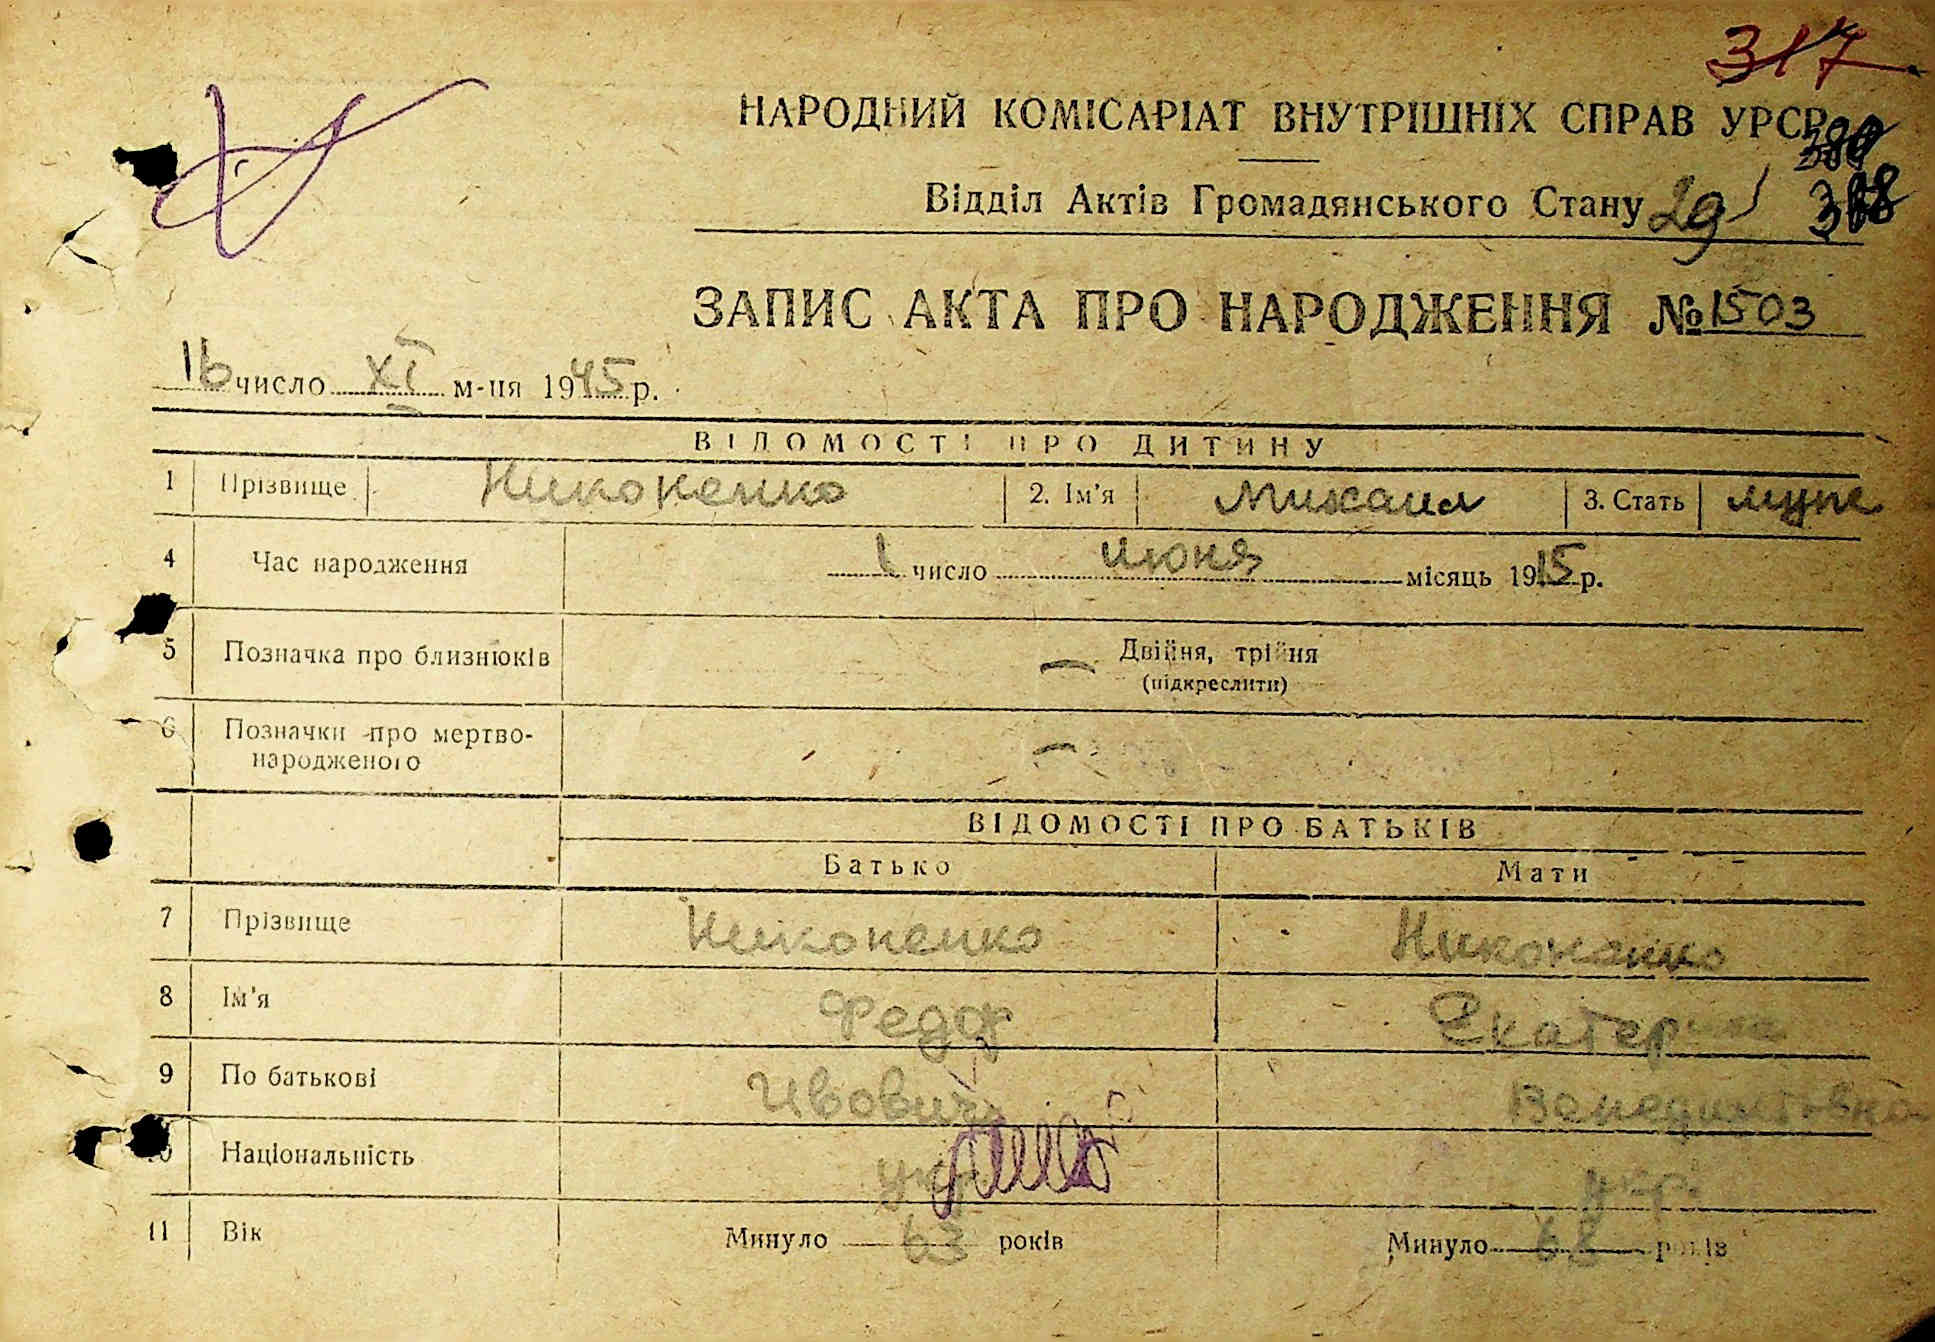 317
НАРОДНИЙ КОМІСАРІАТ ВНУТРІШНІХ СПРАВ УРСР
Відділ Актів Громадянського Стану 29
ЗАПИС АКТА ПРО НАРОДЖЕННЯ № 1503
16 число XI м-ця 1945 р.
ВІДОМОСТІ ПРО ДИТИНУ
1 Прізвище Никоненко 2. Ім'я Михаил 3. Стать муж
4 Час народження 1 число июня місяць 1915 р.
5 Позначка про близнюків — Двійня, трійня
(підкреслити)
6 Позначки про мертво-
народженого —
ВІДОМОСТІ ПРО БАТЬКІВ
Батько Мати
7 Прізвище Никоненко Никоненко
8 Ім'я Федор Екатерина
9 По батькові Ивович Венедиктовна
10 Національність укр укр.
11 Вік Минуло 63 років Минуло 68 років